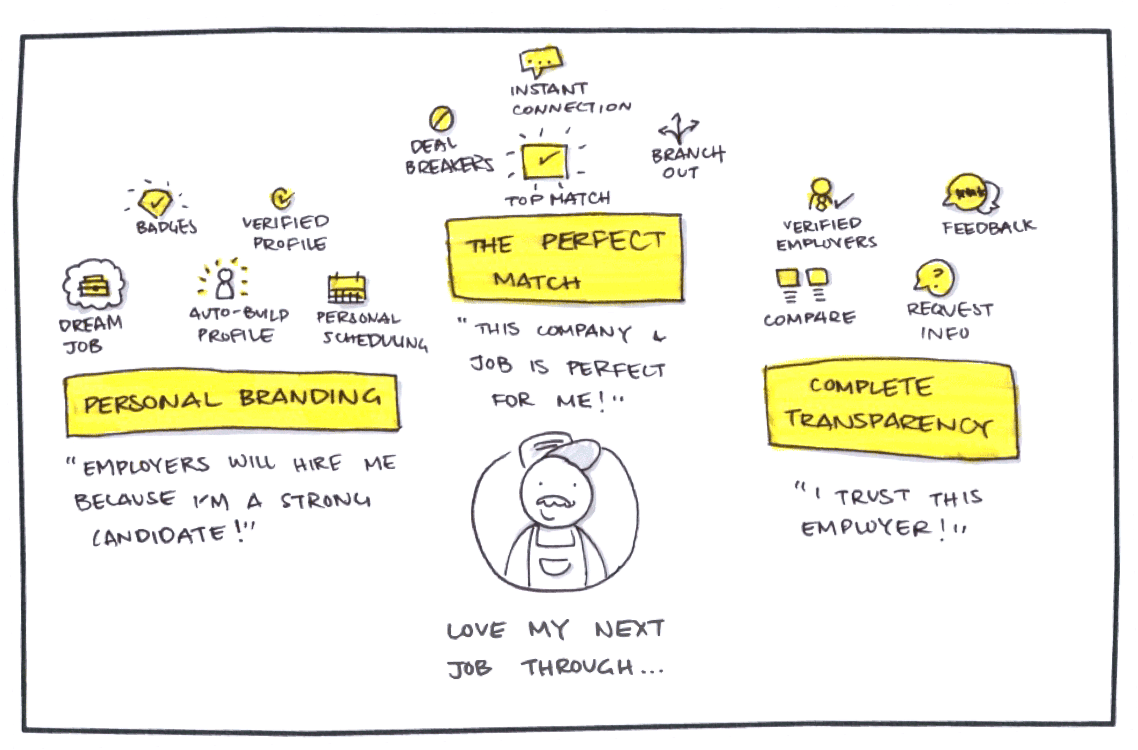 INSTANT
CONNECTION
DEAL
BREAKERS
TOP MATCH
BRANCH
OUT
THE PERFECT
MATCH
"THIS COMPANY &
JOB IS PERFECT
FOR ME!"
BADGES
VERIFIED
PROFILE
DREAM
JOB
AUTO-BUILD
PROFILE
PERSONAL
SCHEDULING
PERSONAL BRANDING
"EMPLOYERS WILL HIRE ME
BECAUSE I'M A STRONG
CANDIDATE!"
VERIFIED
EMPLOYERS
FEEDBACK
COMPARE
REQUEST
INFO
COMPLETE
TRANSPARENCY
"I TRUST THIS
EMPLOYER!"
LOVE MY NEXT
JOB THROUGH...